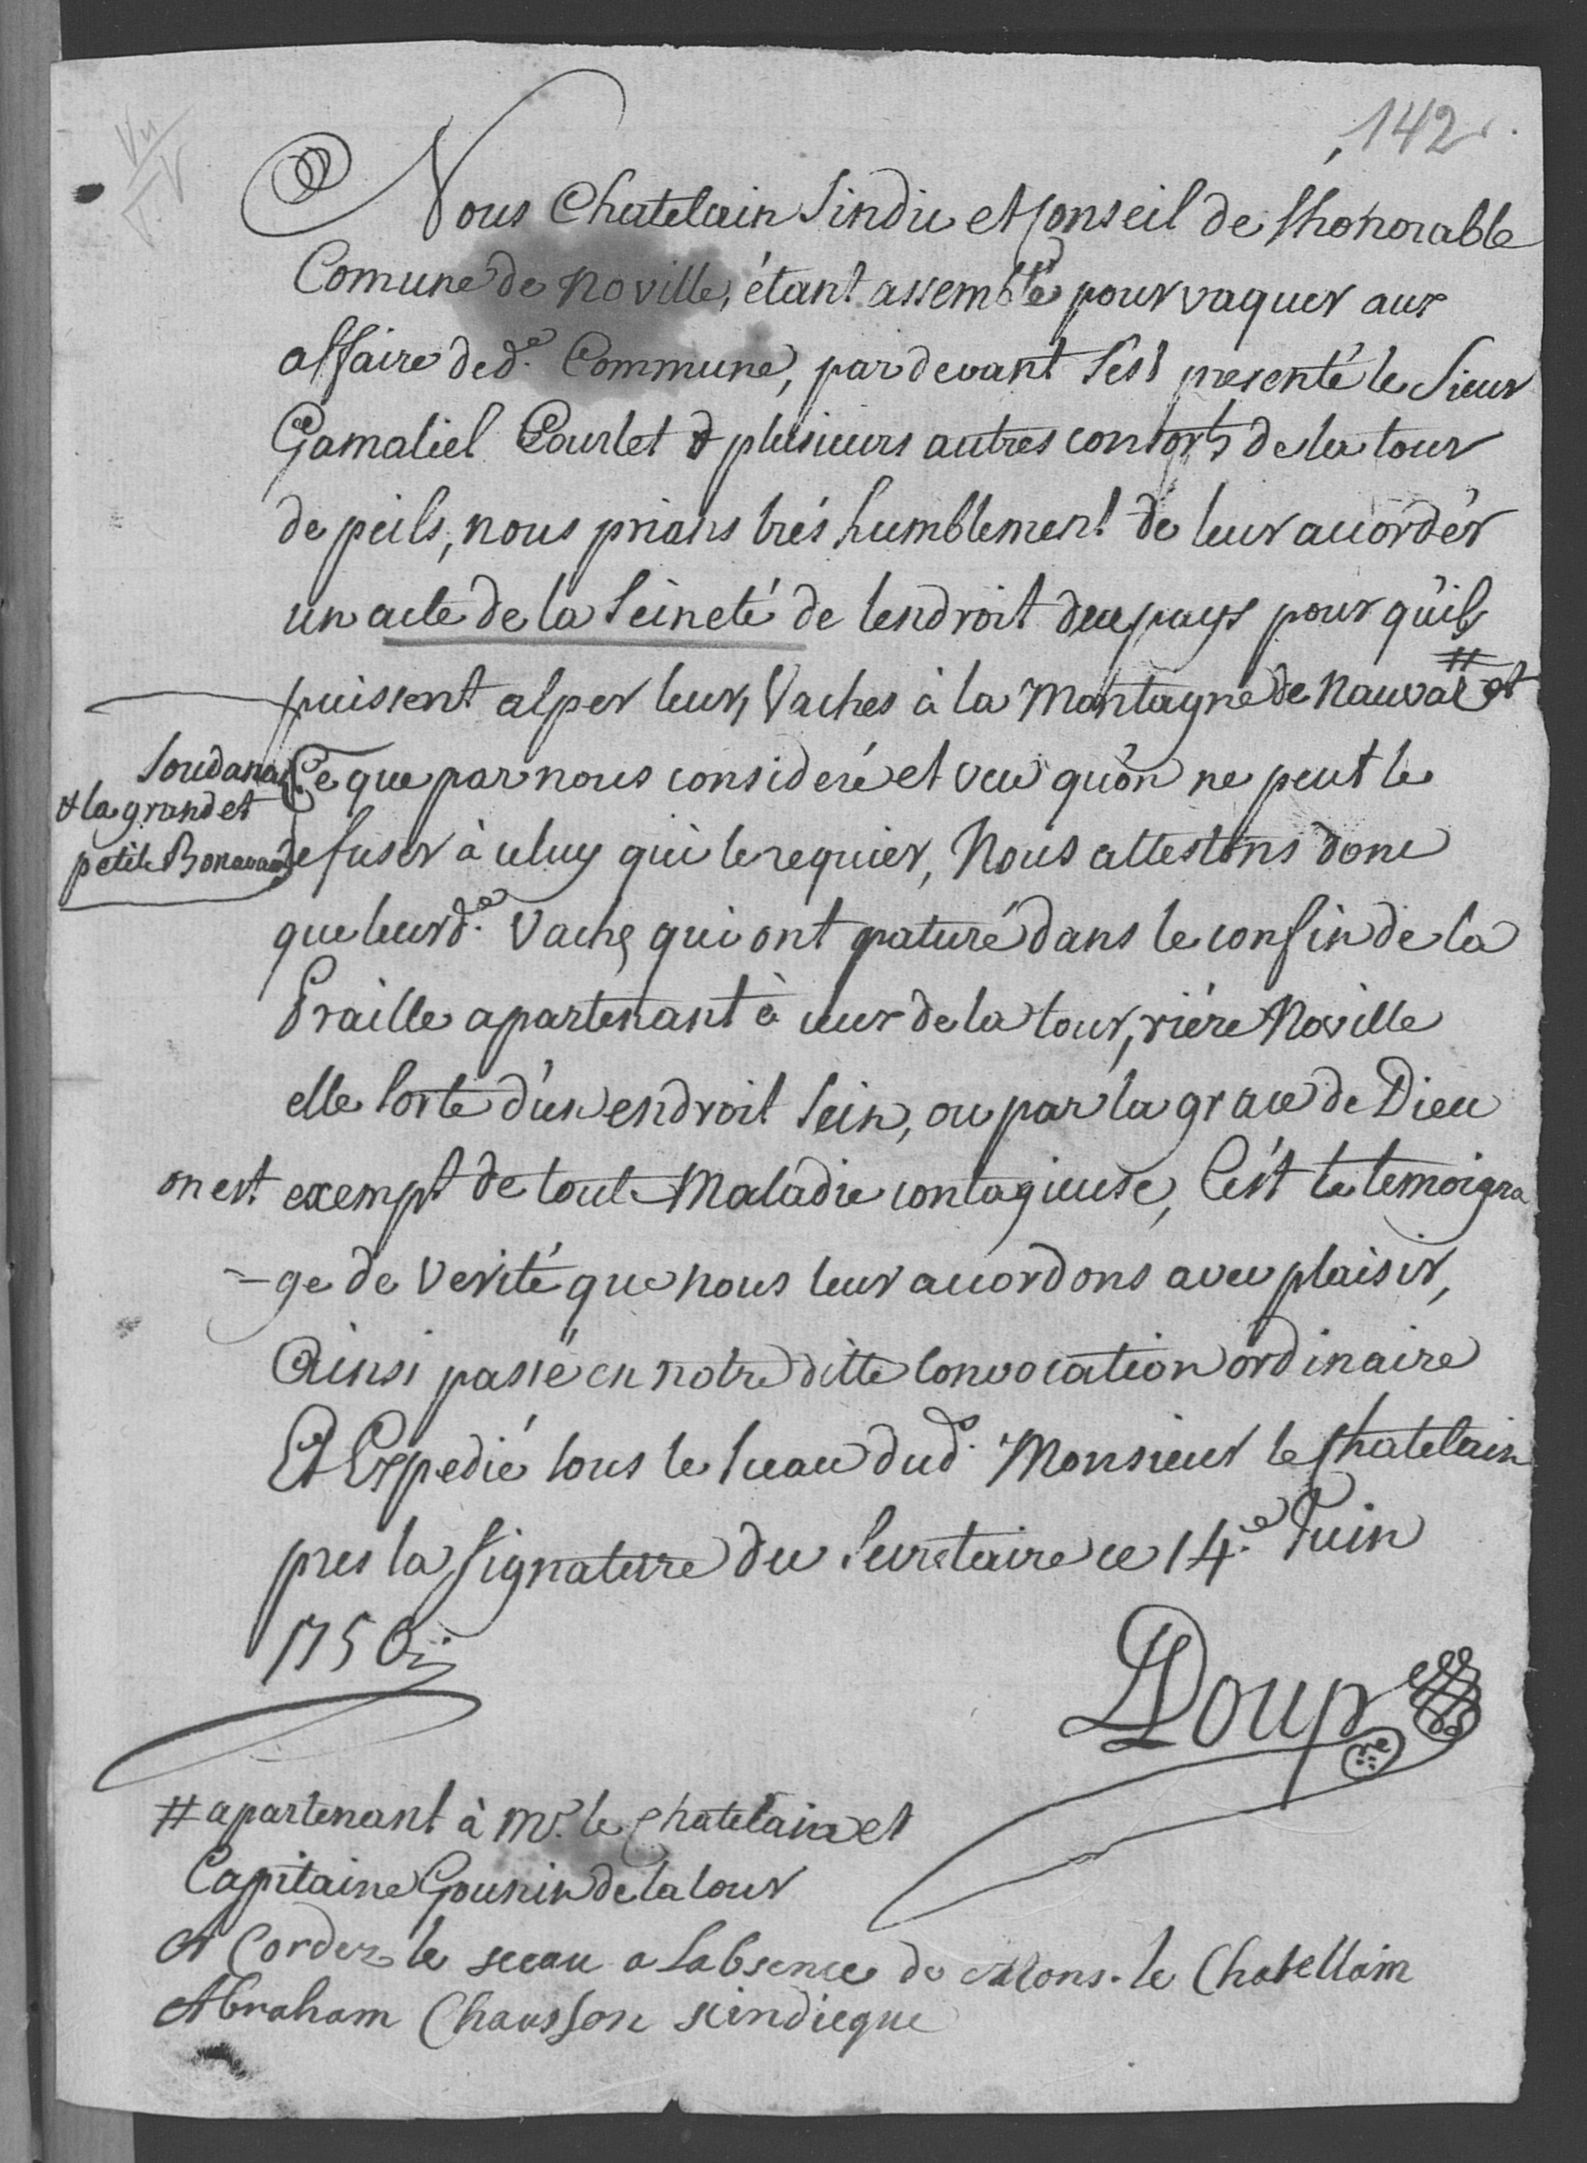 142
Nous Chatelain Sindic et Conseil de Lhonorable
Comune de Noville, étant assemblé pour vaquer aux
affaire de d.e Commune, par devant sést presenté le Sieur
Gamaliel Courlet & plusieurs autres consorts de la tour
de peils, nous prians trés humblement de leur accordér
un acte de la Seineté de lendroit du pays pour quils
puissent alper leurs Vaches à la Montagne de Nauvar # et
Soudana
& la grand et
petite Bonavau
Ce que par nous consideré et veu quón ne peut le
refuser à celuy qui le requier, Nous attestons donc
que leurd.e Vache qui ont paturé dans le confin de la
Praille apartenant à ceux de la tour, riére Noville
elle sorte d'un endroit Sein, ou par la grace de Dieu
on est exempt de toute Maladie contagieuse, Cést le temoigna
=ge de Verité que nous leur accordons avec plaisir,
Ainsi passé en notre ditte Convocation ordinaire
Et Expedié sous le sceau dud.t Monsieur le Chatelain
pres la Signature du Secretaire ce 14.e Juin
1750
DDoup
# apartenant à Mr. le Chatelain et
Capitaine Gounin de la tour
A Cordez le sceau a Labsence de Mons. le Chatellain
Abraham Chausson scindicque